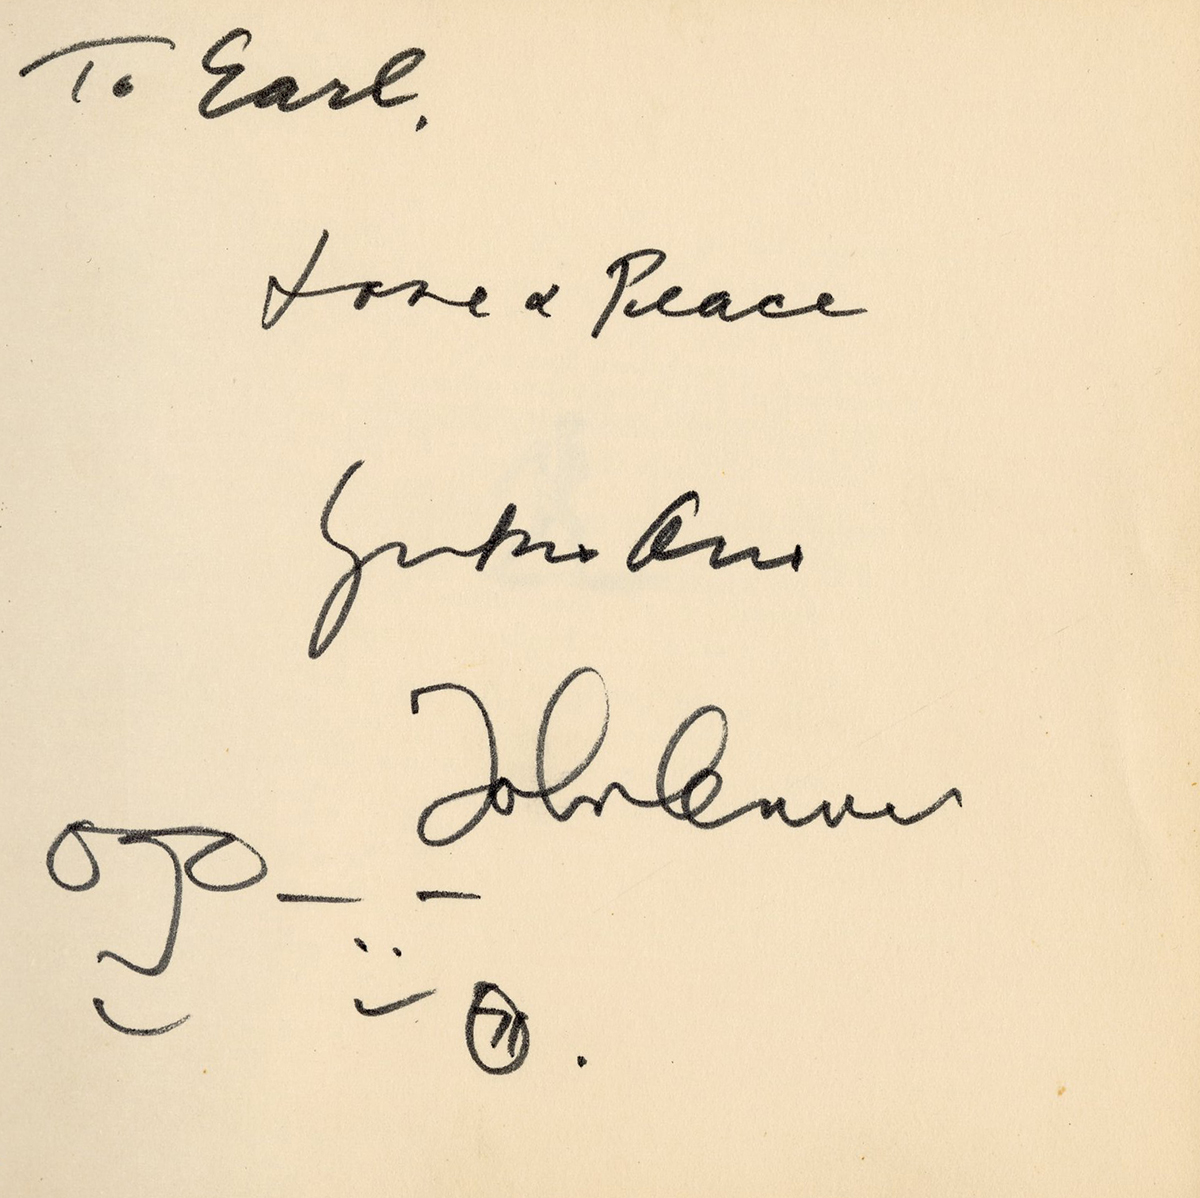 To Earl,
Love & Peace
Yoko Ono
John Lennon